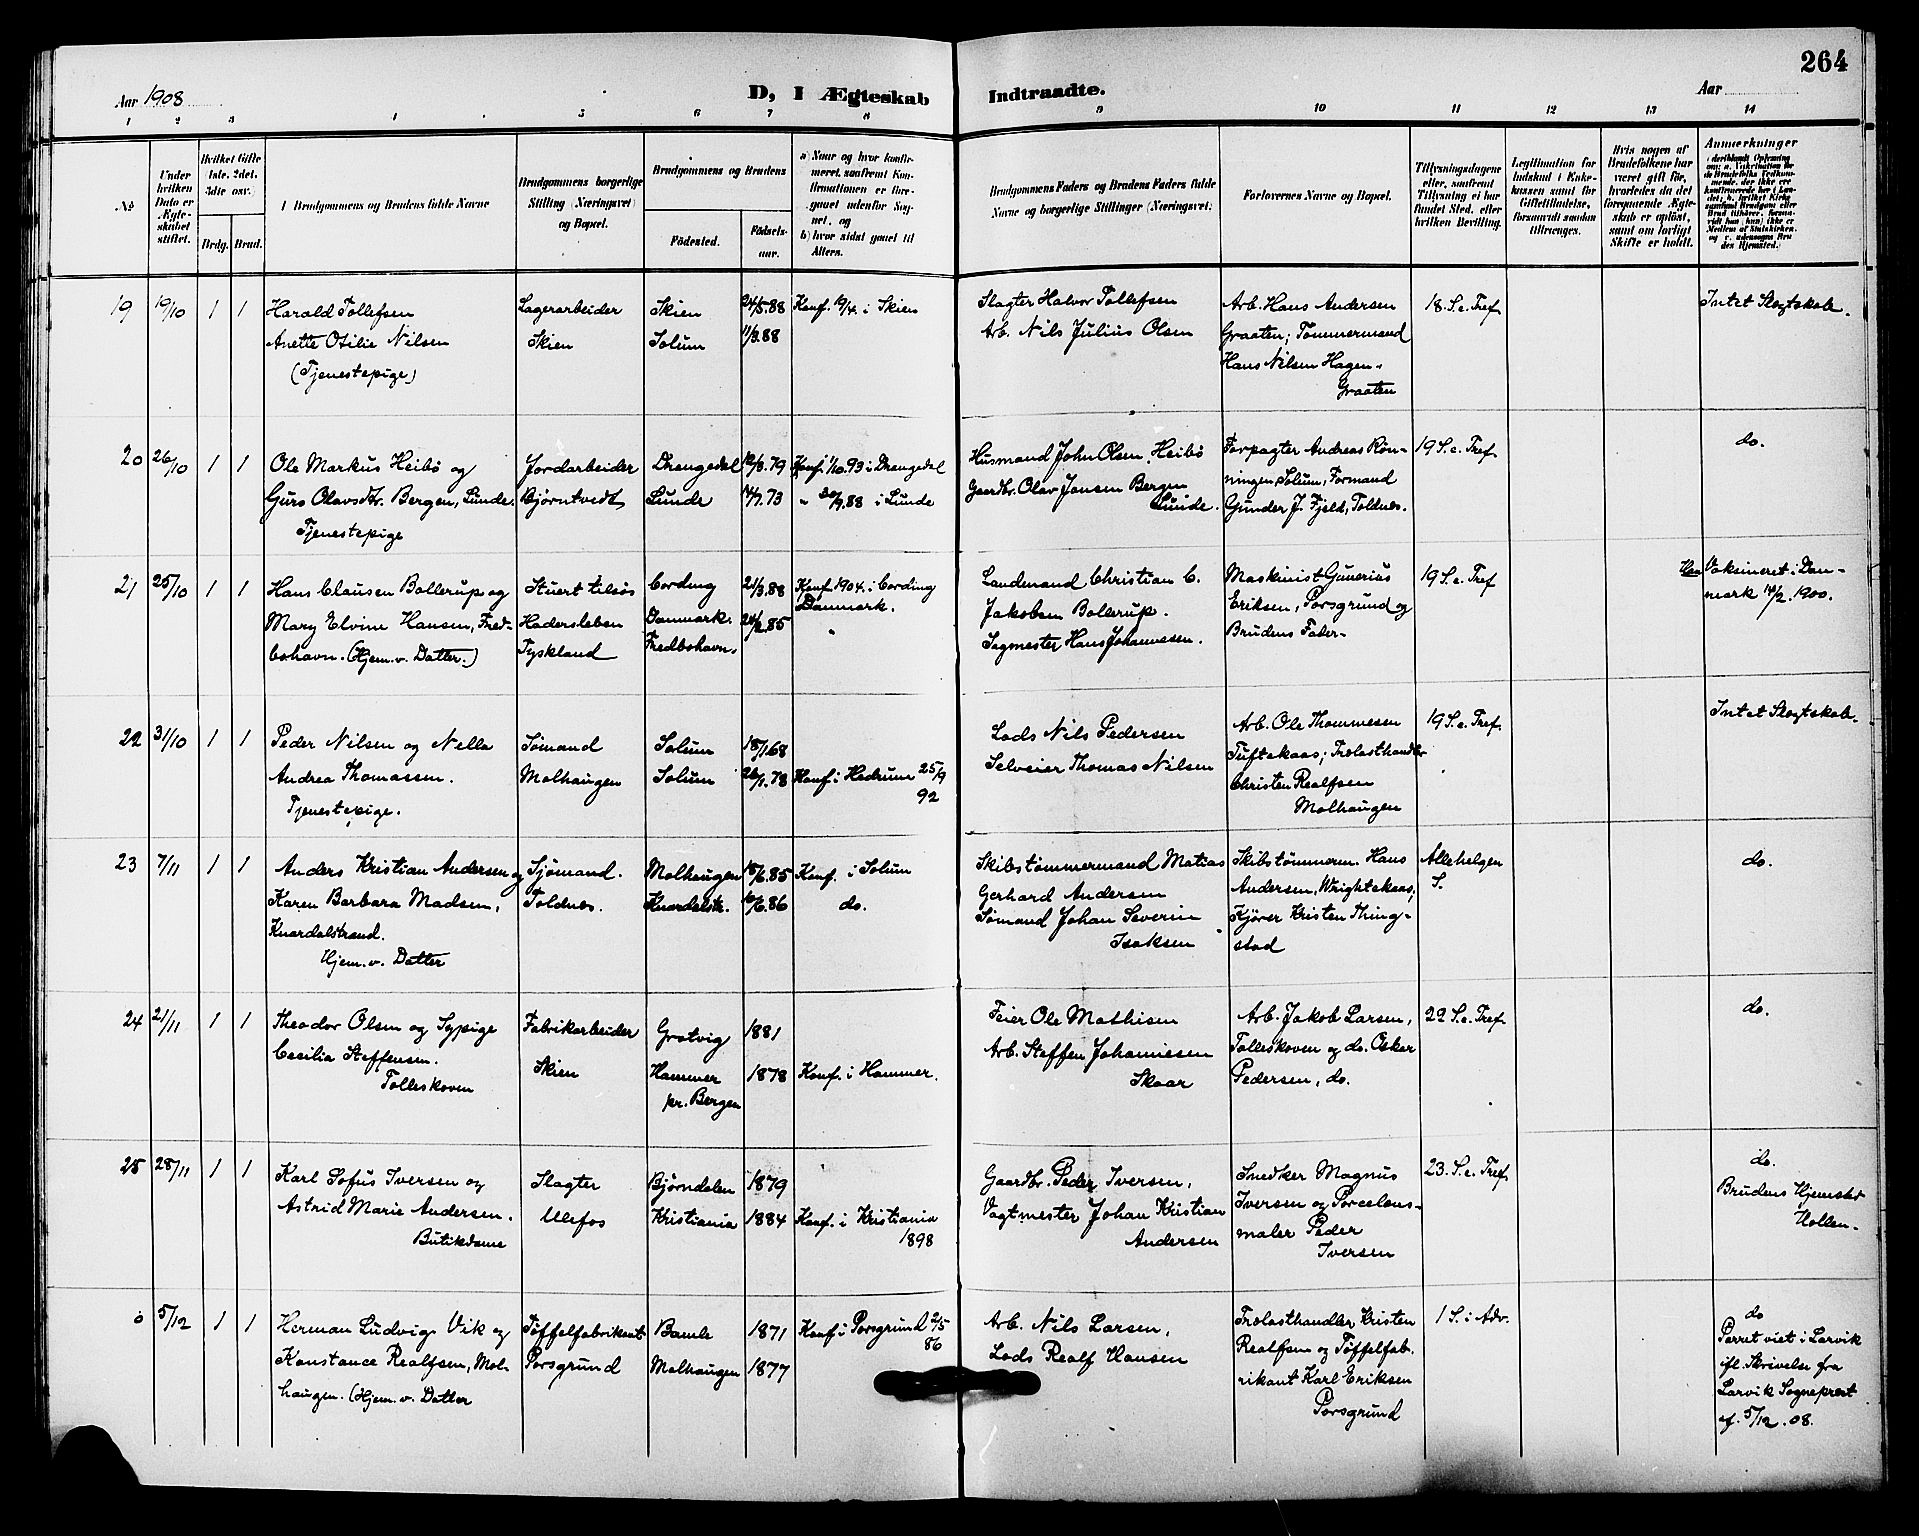 264
Aar 1908
D, I Ægteskab
Indtraadte.
Aar
1 2 3 4 5 6 7 8
9 10 11 12 13 14
No
Under hvilken Dato er Ægteskabet stiftet.
Hvilket Gifte 1ste. 2det. 3die osv.
Brdg. Brud.
Brudgommens og Brudens fulde Navne
Brudgommens borgerlige Stilling (Næringsvei) og Bopæl.
Brudgommens og Brudens
Födested.
Födsels-aar.
a) Naar og hvor konfirmeret, saafremt Konfirmationen er foregaaet udenfor Sognet, og
b) hvor sidst gaaet til Alters.
Brudgommens Faders og Brudens Faders fulde Navne og borgerlige Stillinger (Næringsvei.)
Forlovernes Navne og Bopæl.
Tillysningsdagene eller, saafremt Tillysning ei har fundet Sted, efter hvilken Bevilling.
Legitimation for Indskud i Enkekassen samt for Giftetilladelse, forsaavidt saadan tiltrænges.
Hvis nogen af Brudefolkene har været gift før, hvorledes da det foregaaende Ægteskab er opløst, samt om lovligt Skifte er holdt.
Anmærkninger
19 19/10 1 1
Harald Tollefsen
Anette Otilie Nilsen
(Tjenestepige)
Lagerarbeider
Skien
Skien 24/5.88
Solum 11/3.88
Konf. 19/4. i Skien
Slagter Halvor Tollefsen
Arb. Nils Julius Olsen
Arb. Hans Andersen
Graaten; Tømmermand
Hans Nilsen Hagen,
Graaten
18. S. e. Tref.
Intet Slegtskab.
20 26/10 1 1
Ole Markus Heibö og
Guro Olavsdtr. Bergen, Lunde.
Tjenestepige
Jordarbeider
Bjørntvedt
Drangedal 12/3.79
Lunde 14/7.73
Konf. 1/10.93 i Drangedal
" 30/9.88 i Lunde
Husmand John Olsen Heibö
Gaardbr. Olav Jonsen Bergen
Lunde.
Forpagter Andreas Røn-
ningen, Solum, Formand
Gunder J. Fjeld, Toldnes.
19 S. e. Tref
do.
21 25/10 1 1
Hans Clausen Bollerup og
Mary Elvine Hansen, Fred-
bohavn. (Hjem. v. Datter.)
Stuert tilsös
Hadersleben
Tyskland
Cording
Danmark.
Fredbohavn.
21/3.88
24/2.85
Konf. 1904. i Cording
Danmark.
"
Landmand Christian C.
Jakobsen Bollerup.
Sagmester Hans Johannesen.
Maskinist Gunerius
Eriksen, Porsgrund og
Brudens Fader-
19 S. e. Tref
Han Vaksineret i Dan-
mark 14/2. 1900.
22 31/10 1 1
Peder Nilsen og Nella
Andrea Thomassen.
Tjenestepige.
Sømand
Molhaugen
Solum 18/1 68
Solum 26/1.78
Konf. i Hedrum 25/9
92
Lods Nils Pedersen
Selveier Thomas Nilsen
Arb. Ole Thommesen
Tuftekaas; Trælasthandler
Christen Realfsen
Molhaugen
19 S. e. Tref.
Intet Slegtskab.
23 7/11 1 1
Anders Kristian Andersen og
Karen Barbara Madsen,
Knardalstrand.
Hjem. v. Datter
Sjømand.
Toldnes.
Molhaugen 18/6.85
Knardalstr. 10/6.86
Konf. i Solum
do.
Skibstømmermand Matias
Gerhard Andersen
Sømand Johan Severin
Isaksen
Skibstømmerm. Hans
Andersen, Wrightskaas,
Kjører Kristen Thing-
stad
Allehelgen
S.
do.
24 21/11 1 1
Theodor Olsen og Sypige
Cecilia Steffensen.
Tolleskoven
Fabrikarbeider
Skien
Gratvig 1881
Hammer 1878
pr. Bergen
Konf. i Hammer.
Feier Ole Mathisen
Arb. Steffen Johannesen
Skaar
Arb. Jakob Larsen,
Tolleskoven og do. Oskar
Pedersen, do.
22 S. e. Tref.
do.
25 28/11 1 1
Karl Sofus Iversen og
Astrid Marie Andersen.
Butikdame
Slagter
Ulefos
Bjørndalen 1879
Kristiania 1884
Konf. i Kristiania
1898
Gaardbr. Peder Iversen,
Vagtmester Johan Kristian
Andersen
Snedker Magnus
Iversen og Porcelens-
maler Peder
Iversen
23. S. e. Tref
do.
Brudens Hjemsted
Hollen-
0 5/12 1 1
Herman Ludvig Vik og
Konstance Realfsen, Mol-
haugen. (Hjem. v. Datter
Tøffelfabrikant
Porsgrund
Bamle 1871
Molhaugen 1877
Konf. i Porsgrund 2/5
86
Arb. Nils Larsen,
Lods Realf Hansen
Trælasthandler Kristen
Realfsen og Tøffelfab.
rikant Karl Eriksen
Porsgrund
1 S. i Adv.
do
Parret viet i Larvik
ifl. Skrivelse fra
Larvik Sogneprest
af 5/12. 08.